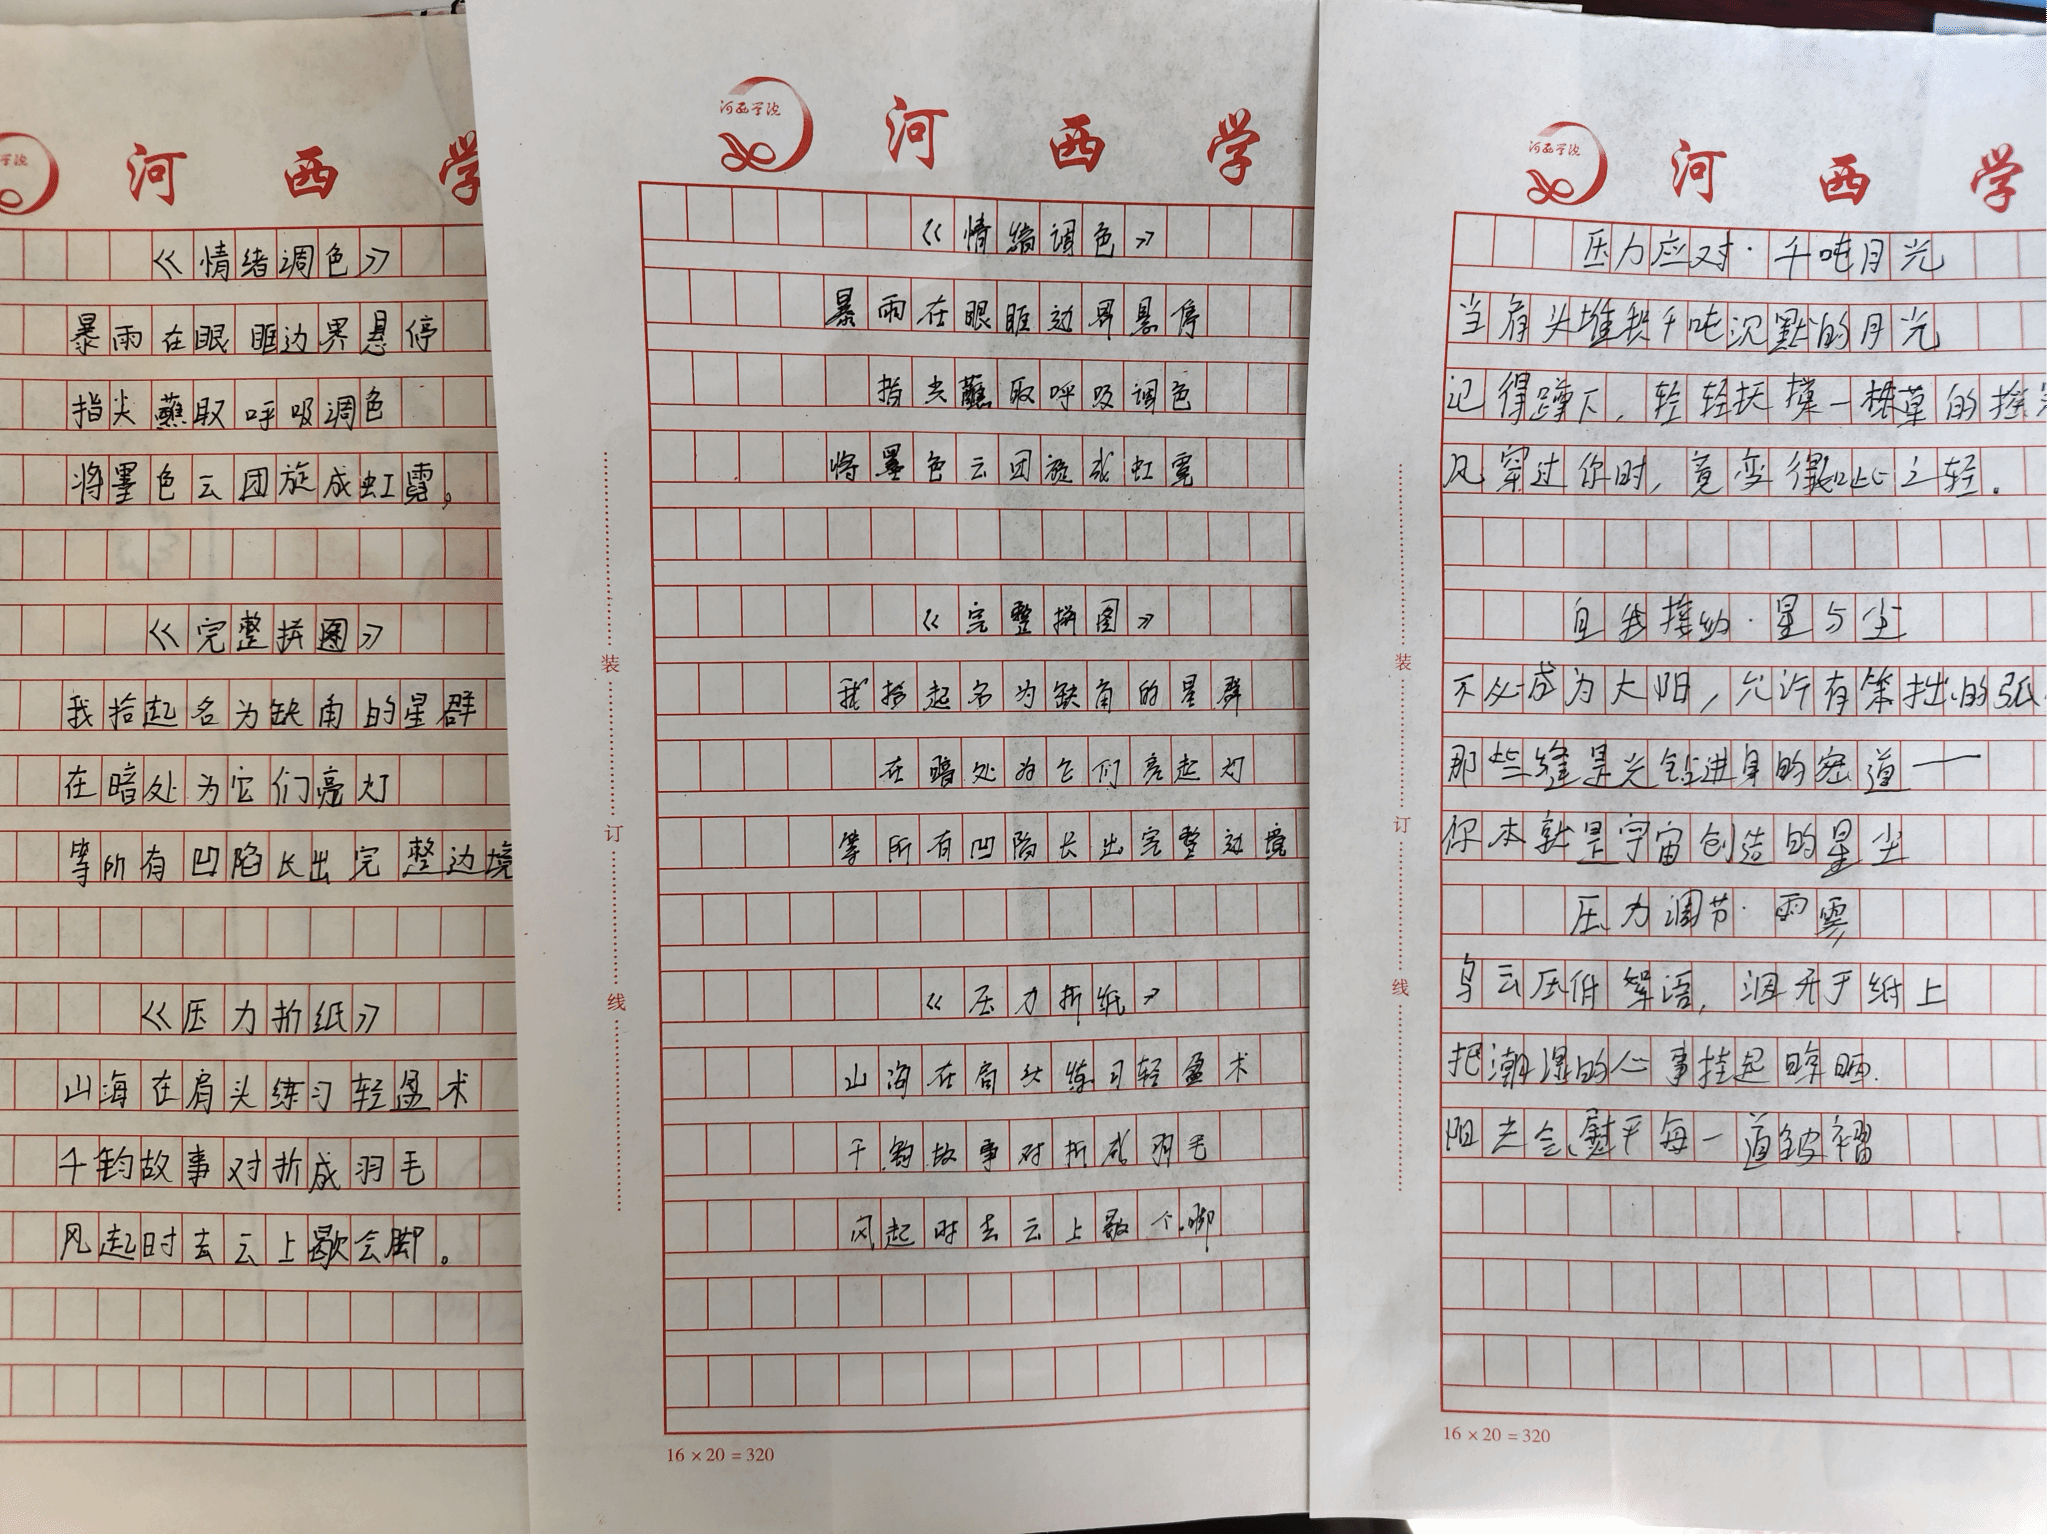 学院
河西学
《情绪调色》
暴雨在眼眶边界悬停
指尖蘸取呼吸调色
将墨色云团旋成虹霓。
《完整拼图》
我拾起名为缺角的星群
在暗处为它们亮灯
等所有凹陷长出完整边境
《压力折纸》
山海在肩头练习轻盈术
千钧故事对折成羽毛
风起时去云上歇会脚。
河西学院
河西学
《情绪调色》
暴雨在眼眶边界悬停
指尖蘸取呼吸调色
将墨色云团旋成虹霓
《完整拼图》
我拾起名为缺角的星群
在暗处为它们亮起灯
等所有凹陷长出完整边境
《压力折纸》
山海在肩头练习轻盈术
千钧故事对折成羽毛
风起时去云上歇个脚
装
订
线
16×20=320
河西学院
河西学
压力应对·千吨月光
当肩头堆积千吨沉默的月光
记得蹲下，轻轻抚摸一株草的
风穿过你时，竟变得如此之轻。
自我接纳·星与尘
不必成为太阳，允许有笨拙的弧
那些缝是光钻进身的密道——
你本就是宇宙创造的星尘
压力调节·雨霁
乌云压低絮语，洇开于纸上
把潮湿的心事挂起晾晒.
阳光会熨平每一道皱褶
装
订
线
16×20=320